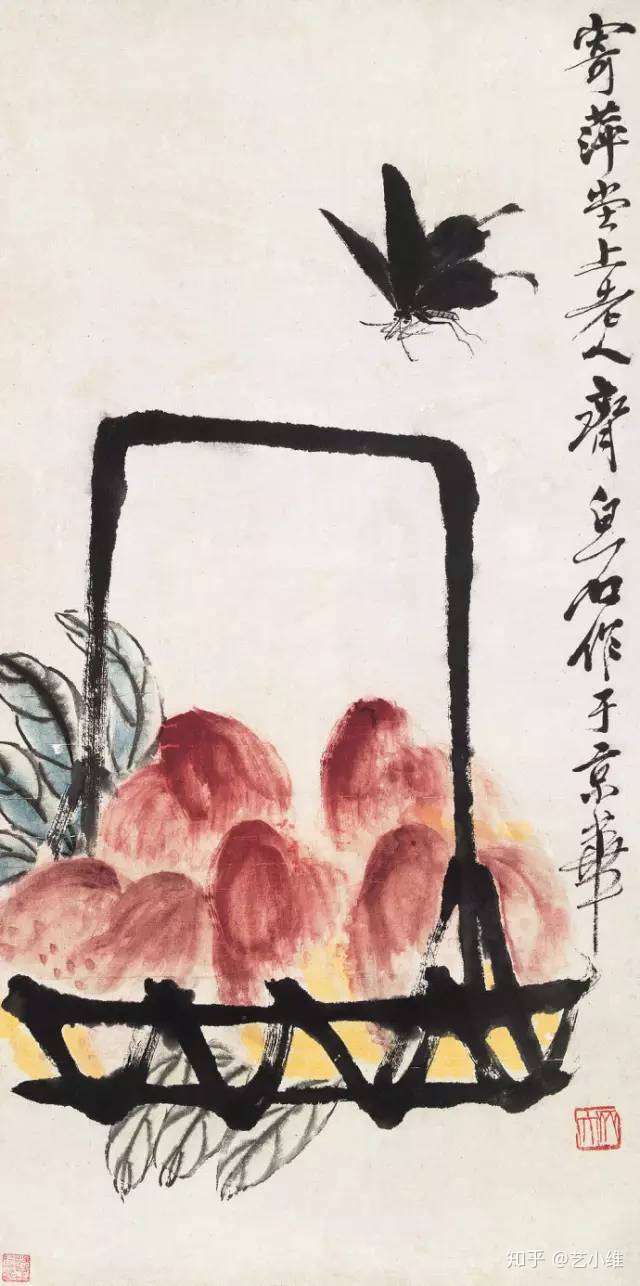 寄萍堂上老人齊白石作于京華
木人
知乎 @艺小维